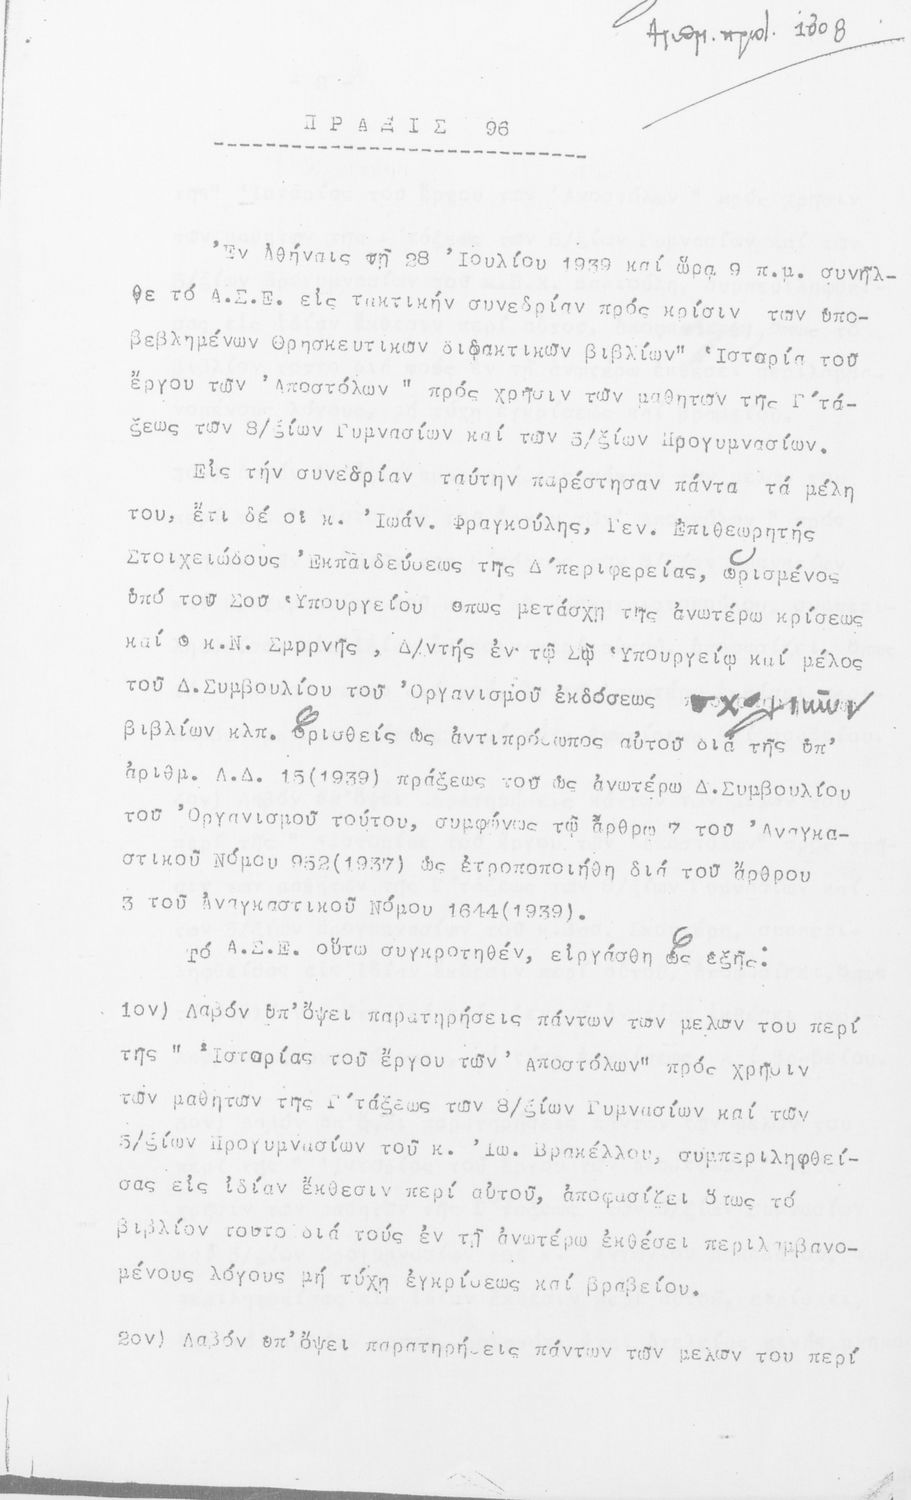 Αριθμ. πρωτ. 1308
ΠΡΑΞΙΣ 96
Ἐν Ἀθήναις τῇ 28 Ἰουλίου 1939 καί ὥρα 9 π.μ. συνῆλ-
θε τό Α.Σ.Ε. εἰς τακτικήν συνεδρίαν πρός κρίσιν των ὑπο-
βεβλημένων Θρησκευτικων διδακτικῶν βιβλίων" Ἱστορία τοῦ
ἔργου τῶν Ἀποστόλων " πρός χρῆσιν τῶν μαθητων της Γ΄τά-
ξεως τῶν 8/ξίων Γυμνασίων καί τῶν 5/ξίων Προγυμνασίων.
Εἰς τήν συνεδρίαν ταύτην παρέστησαν πάντα τά μέλη
του, ἔτι δέ οἱ κ. Ἰωάν. Φραγκούλης, Γεν. Ἐπιθεωρητής
Στοιχειώδους Ἐκπαιδεύσεως της Δ΄περιφερείας, ὡρισμένος
ὑπό τοῦ Σοῦ Ὑπουργείου οπως μετάσχῃ της ἀνωτέρω κρίσεως
καί ὁ κ.Ν. Σμρρνής , Δ/ντής ἐν τῷ Σῷ Ὑπουργείῳ καί μέλος
τοῦ Δ.Συμβουλίου τοῦ Ὀργανισμοῦ ἐκδόσεως σχολικῶν
βιβλίων κλπ. ὁρισθείς ὡς ἀντιπρόσωπος αὐτοῦ διά τῆς ὑπ'
ἀριθμ. Λ.Δ. 15(1939) πράξεως τοῦ ὡς ἀνωτέρω Δ.Συμβουλίου
τοῦ Ὀργανισμοῦ τούτου, συμφώνως τῷ ἄρθρῳ 7 τοῦ Ἀναγκα-
στικοῦ Νόμου 952(1937) ὡς ἐτροποποιήθη διά τοῦ ἄρθρου
3 τοῦ Ἀναγκαστικοῦ Νόμου 1644(1939).
Τό Α.Σ.Ε. οὕτω συγκροτηθέν, εἰργάσθη ὡς ἑξῆς:
1ον) Λαβόν ὑπ'ὄψει παρατηρήσεις πάντων των μελων του περί
τῆς " Ἱστορίας τοῦ ἔργου τῶν Ἀποστόλων" πρός χρῆσιν
τῶν μαθητων της Γ΄τάξεως τῶν 8/ξίων Γυμνασίων καί τῶν
5/ξίων Προγυμνασίων τοῦ κ. Ἰω. Βρακέλλου, συμπεριληφθεί-
σας εἰς ἰδίαν ἔκθεσιν περί αὐτοῦ, ἀποφασίζει ὅπως τό
βιβλίον τουτο διά τούς ἐν τῇ ἀνωτέρω ἐκθέσει περιλαμβανο-
μένους λόγους μή τύχῃ ἐγκρίσεως καί βραβείου.
2ον) Λαβόν ὑπ'ὄψει παρατηρήσεις πάντων τῶν μελων του περί